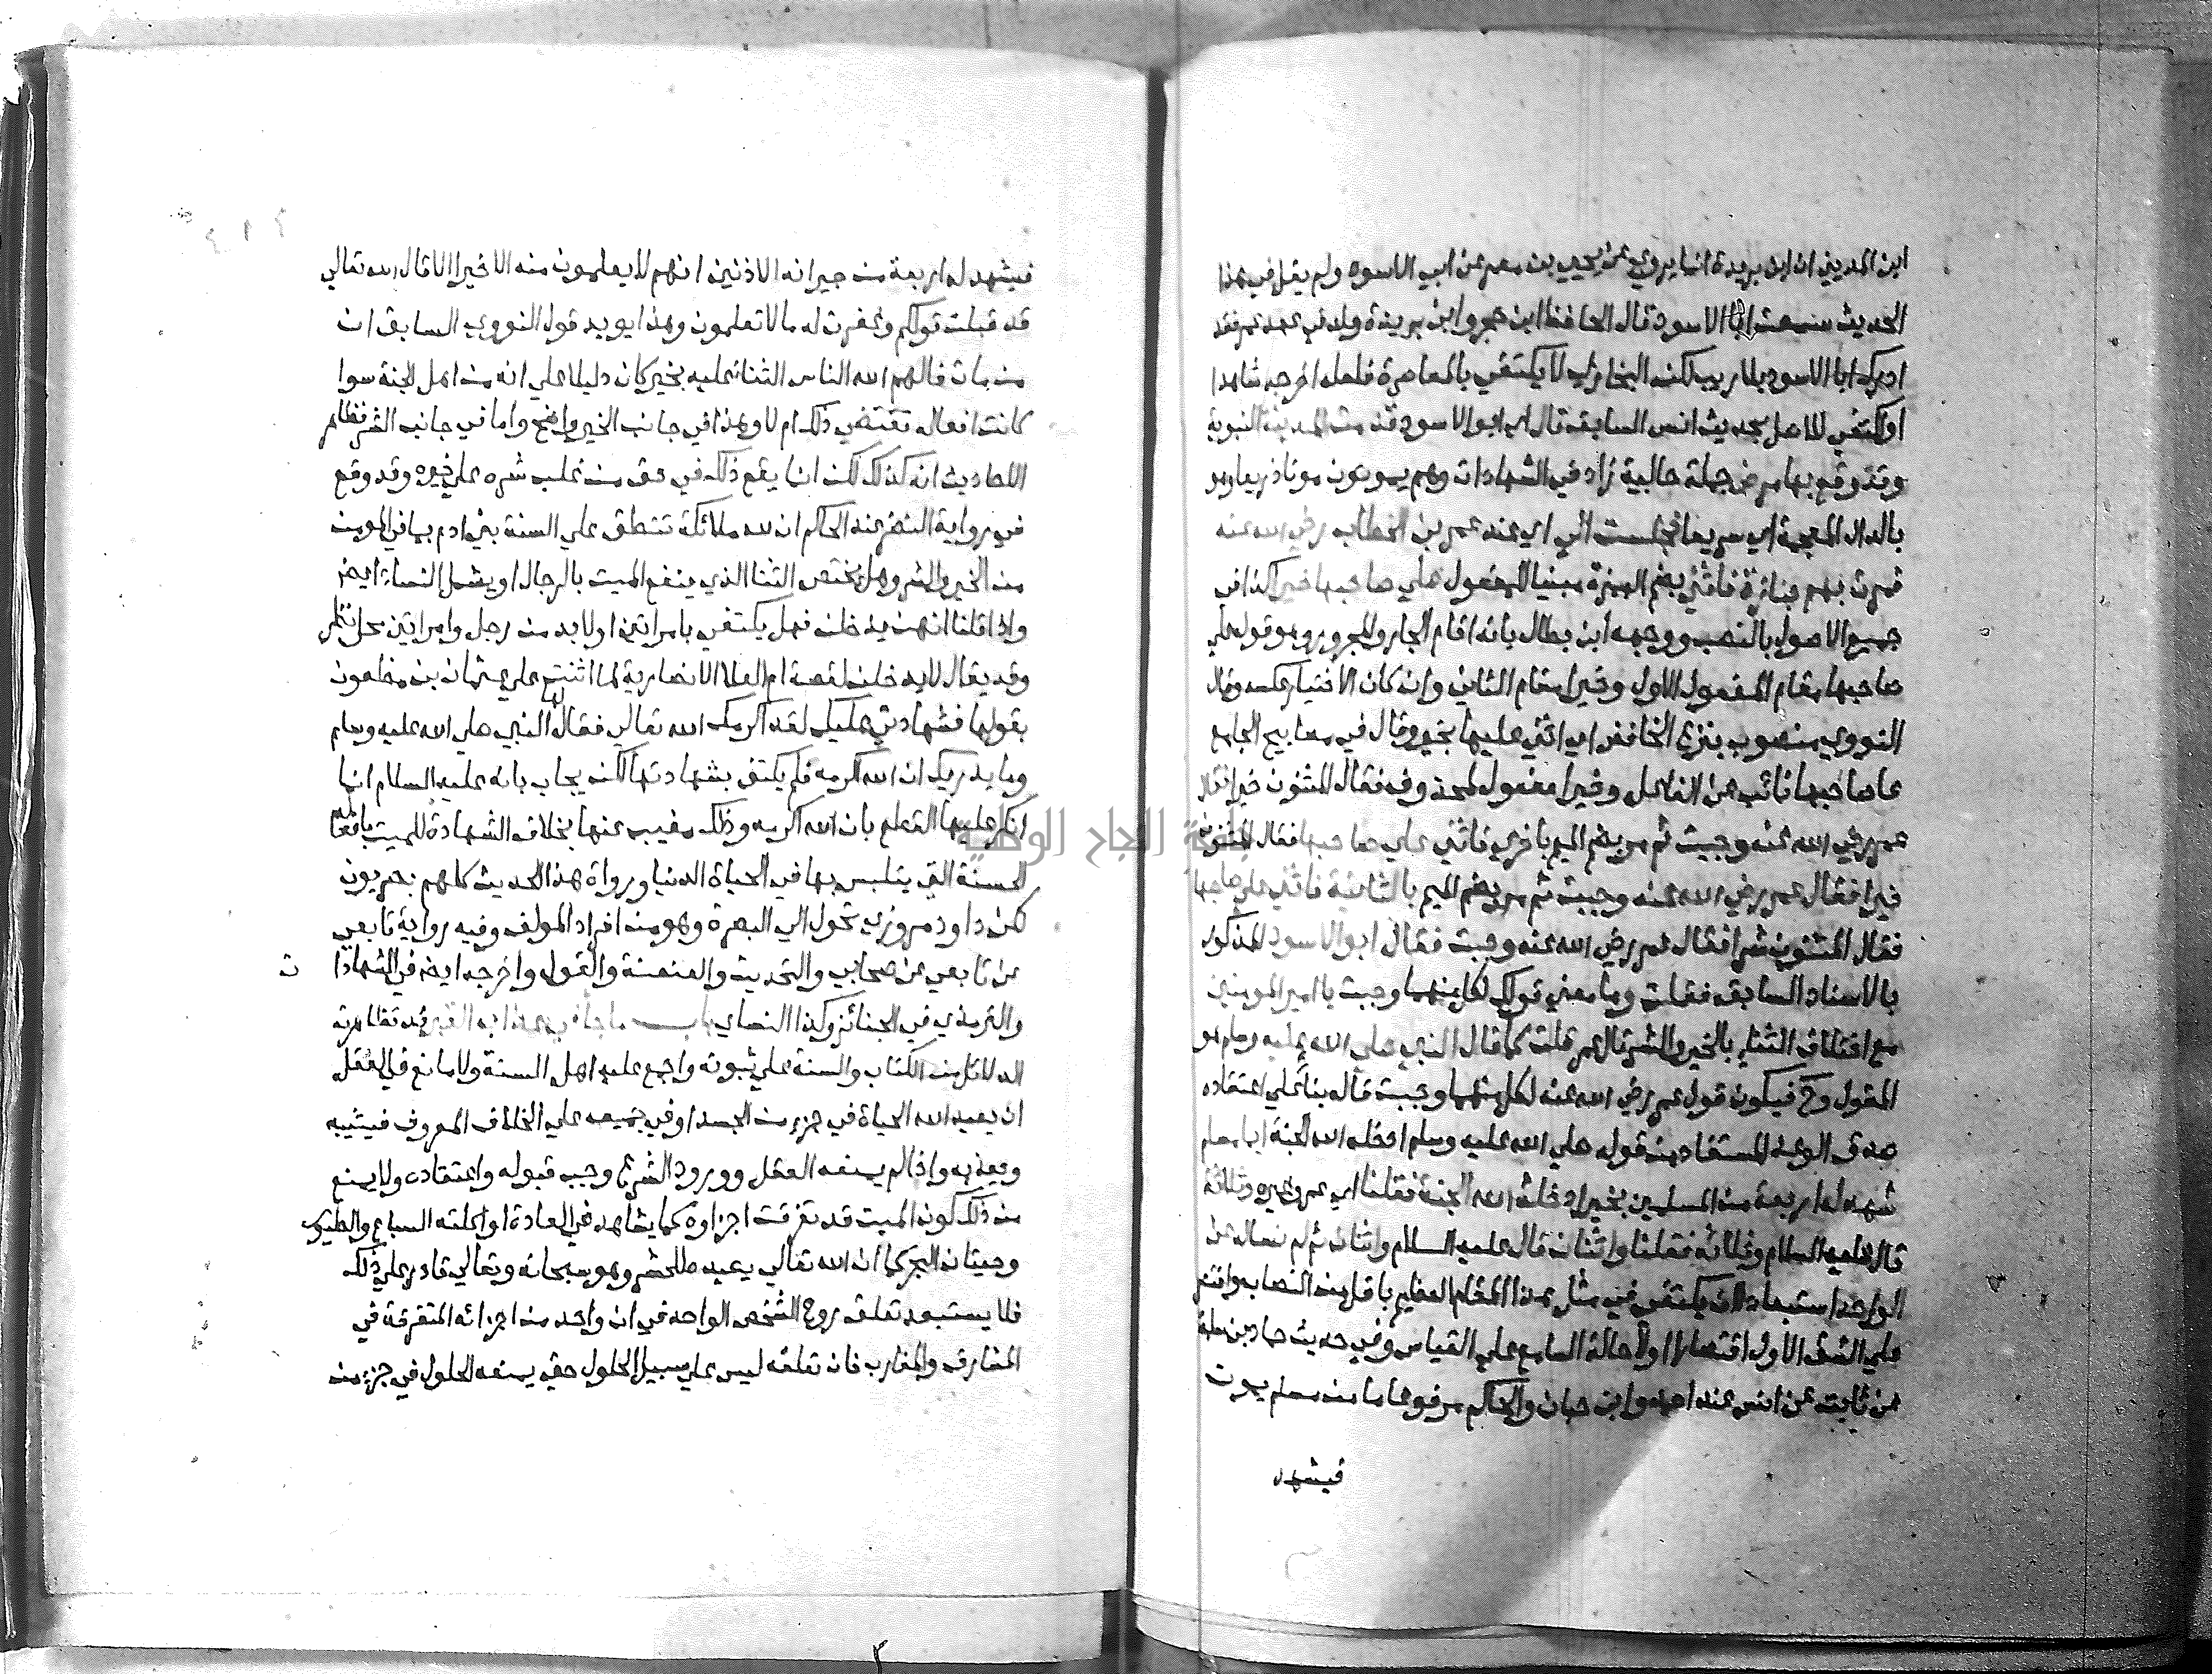 ابن المديني ان ابن بريدة انما يروي عن يحيى بن معمر عن ابي الاسود ولم يقل في هذا
الحديث سمعت ابا الاسود قال الحافظ ابن حجر وابن بريدة ولد في عهد عمر فقد
ادرك ابا الاسود بلا ريب لكن البخاري لا يكتفي بالمعاصرة فلعله اخرجه شاهدا
او اكتفي للاصل بحديث انس السابق قال اي ابو الاسود قدمت المدينة النبوية
وقد وقع بها مرض جملة حالية زاد في الشهادات وهم يموتون موتا ذريعا وهو
بالذال المعجمة اي سريعا فجلست الي اي عند عمر بن الخطاب رضي الله عنه
فمرت بهم جنازة فاثني بضم الهمزة مبنيا للمفعول علي صاحبها خيرا كذا في
جميع الاصول بالنصب ووجهه ابن بطال بانه اقام الجار والمجرور وهو قوله علي
صاحبها مقام المفعول الاول وخيرا مقام الثاني وان كان الاختيار عكسه وقال
النووي منصوب بنزع الخافض اي اثني عليها بخير وقال في مصابيح الجامع
علي صاحبها نائب عن الفاعل وخيرا مفعول لمحذوف فقال المثنون خيرا فقال
عمر رضي الله عنه وجبت ثم مر بضم الميم باخري فاثني علي صاحبها فقال المثنون
خيرا فقال عمر رضي الله عنه وجبت ثم مر بضم الميم بالثالثة فاثني علي صاحبها
فقال المثنون شرا فقال عمر رضي الله عنه وجبت فقال ابو الاسود المذكور
بالاسناد السابق فقلت وما معني قولك لكل منهما وجبت يا امير المومنين
مع اختلاف الثناء بالخير والشر قال عمر قلت كما قال النبي صلي الله عليه وسلم هو
المقول وح فيكون قول عمر رضي الله عنه لكل منهما وجبت قاله بناء علي اعتقاده
صدق الوعد المستفاد من قوله صلي الله عليه وسلم ادخله الله الجنة ايما مسلم
شهد له اربعة من المسلمين بخير ادخله الله الجنة فقلنا اي عمر وغيره وثلاثة
قال عليه السلام وثلاثه فقلنا واثنان قال عليه السلام واثنان ثم لم نساله عن
الواحد استبعادا لان يكتفي في مثل هذا المقام العظيم باقل من النصاب واقتصر
علي الشق الاول اقتصارا او لاحالة السامع علي القياس وفي حديث حماد بن سلمة
عن ثابت عن انس عند احمد وابن حبان والحاكم مرفوعا ما من مسلم يموت
فيشهد
فيشهد له اربعة من جيرانه الادنين انهم لا يعلمون منه الا خيرا الا قال الله تعالي
قد قبلت قولكم وغفرت له ما لا تعلمون وهذا يويد قول النووي السابق ان
من مات فالهم الله الناس الثناء عليه بخير كان دليلا علي انه من اهل الجنة سوا
كانت افعاله تقتضي ذلك ام لا وهذا في جانب الخير واضح واما في جانب الشر فظاهر
الاحاديث انه كذلك لكن انما يقع ذلك في حق من غلب شره علي خيره وقد وقع
في رواية النضر عند الحاكم ان لله ملائكة تنطق علي السنة بني ادم بما في المومن
من الخير والشر وهل يختص الثنا الذي ينفع الميت بالرجال او يشمل النساء ايضا
واذا قلنا انهن يدخلن فهل يكتفي بامراتين او لا بد من رجل وامراتين محل نظر
وقد يقال لا يدخلن لقصة ام العلا الانصارية لما اثنت علي عثمان بن مظعون
بقولها فشهادتي عليك لقد اكرمك الله تعالي فقال لها النبي صلي الله عليه وسلم
وما يدريك ان الله اكرمه فلم يكتف بشهادتها لكن يجاب بانه عليه السلام انما
انكر عليها القطع بان الله اكرمه وذلك مغيب عنها بخلاف الشهادة للميت بافعاله
الحسنة التي يتلبس بها في الحياة الدنيا ورواة هذا الحديث كلهم بصريون
لكن داود مروزي تحول الي البصرة وهو من افراد المولف وفيه رواية تابعي
عن تابعي عن صحابي والتحديث والعنعنة والقول واخرجه ايضا في الشهادات
والترمذي في الجنائز وكذا النساي باب ما جاء في عذاب القبر قد تظاهرت
الدلائل من الكتاب والسنة علي ثبوته واجمع عليه اهل السنة ولا مانع في العقل
ان يعيد الله الحياة في جزء من الجسد او في جميعه علي الخلاف المعروف فيثيبه
ويعذبه واذا لم يمنعه العقل وورود الشرع وجب قبوله واعتقاده ولا يمنع
من ذلك كون الميت قد تفرقت اجزاوه كما يشاهد في العادة او اكلته السباع والطيور
وحيتان البحر كما ان الله تعالي يعيده للحشر وهو سبحانه وتعالي قادر علي ذلك
فلا يستبعد تعلق روح الشخص الواحد في ان واحد من اجزائه المتفرقة في
المشارق والمغارب فان تعلقه ليس علي سبيل الحلول حتي يمنعه الحلول في جزء من
جامعة النجاح الوطنية